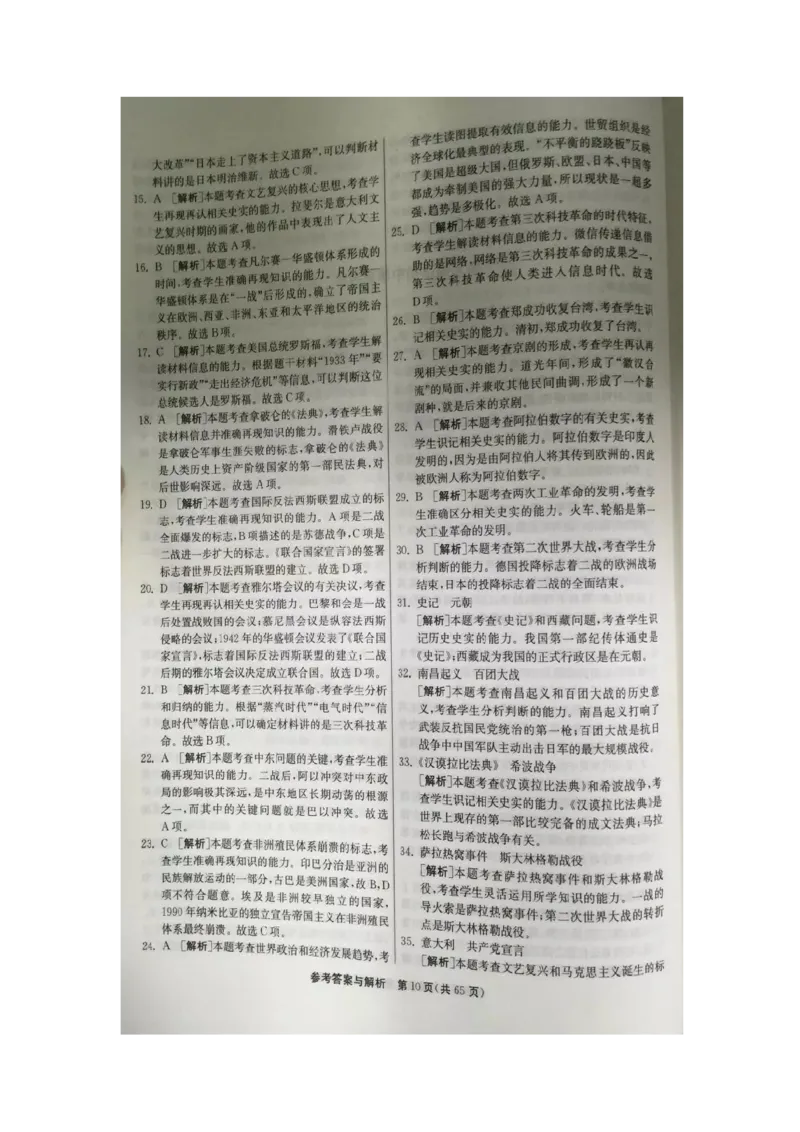 大改革”“日本走上了资本主义道路”,可以判断材
料讲的是日本明治维新。故选 C 项。
15. A [解析]本题考查文艺复兴的核心思想,考查学
生再现再认相关史实的能力。拉斐尔是意大利文
艺复兴时期的画家,他的作品中表现出了人文主
义的思想。故选 A 项。
16. B [解析]本题考查凡尔赛—华盛顿体系形成的
时间,考查学生准确再现知识的能力。凡尔赛—
华盛顿体系是在“一战”后形成的,确立了帝国主
义在欧洲、西亚、非洲、东亚和太平洋地区的统治
秩序。故选 B 项。
17. C [解析]本题考查美国总统罗斯福,考查学生解
读材料信息的能力。根据题干材料“1933 年”“要
实行新政”“走出经济危机”等信息,可以判断这位
总统候选人是罗斯福。故选 C 项。
18. A [解析]本题考查拿破仑的《法典》,考查学生解
读材料信息并准确再现知识的能力。滑铁卢战役
是拿破仑军事生涯失败的标志,拿破仑的《法典》
是人类历史上资产阶级国家的第一部民法典,对
后世影响深远。故选 A 项。
19. D [解析]本题考查国际反法西斯联盟成立的标
志,考查学生准确再现知识的能力。A 项是二战
全面爆发的标志,B 项描述的是苏德战争,C 项是
二战进一步扩大的标志。《联合国家宣言》的签署
标志着世界反法西斯联盟的建立。故选 D 项。
20. D [解析]本题考查雅尔塔会议的有关决议,考查
学生再现再认相关史实的能力。巴黎和会是一战
后处置战败国的会议;慕尼黑会议是纵容法西斯
侵略的会议;1942 年的华盛顿会议发表了《联合国
家宣言》,标志着国际反法西斯联盟的建立;二战
后期的雅尔塔会议决定成立联合国。故选 D 项。
21. B [解析]本题考查三次科技革命,考查学生分析
和归纳的能力。根据“蒸汽时代”“电气时代”“信
息时代”等信息,可以确定材料讲的是三次科技革
命。故选 B 项。
22. A [解析]本题考查中东问题的关键,考查学生准
确再现知识的能力。二战后,阿以冲突对中东政
局的影响极其深远,是中东地区长期动荡的根源
之一,而其中的关键问题就是巴以冲突。故选
A 项。
23. C [解析]本题考查非洲殖民体系崩溃的标志,考
查学生准确再现知识的能力。印巴分治是亚洲的
民族解放运动的一部分,古巴是美洲国家,故 B,D
项不符合题意。埃及是非洲较早独立的国家,
1990 年纳米比亚的独立宣告帝国主义在非洲殖民
体系最终崩溃。故选 C 项。
24. A [解析]本题考查世界政治和经济发展趋势,考
查学生读图提取有效信息的能力。世贸组织是经
济全球化最典型的表现。“不平衡的跷跷板”反映
了美国是超级大国,但俄罗斯、欧盟、日本、中国等
都成为牵制美国的强大力量,所以现状是一超多
强,趋势是多极化。故选 A 项。
25. D [解析]本题考查第三次科技革命的时代特征,
考查学生解读材料信息的能力。微信传递信息借
助的是网络,网络是第三次科技革命的成果之一,
第三次科技革命使人类进入信息时代。故选
D 项。
26. B [解析]本题考查郑成功收复台湾,考查学生识
记相关史实的能力。清初,郑成功收复了台湾。
27. A [解析]本题考查京剧的形成,考查学生再认再
现相关史实的能力。道光年间,形成了“徽汉合
流”的局面,并兼收其他民间曲调,形成了一个新
剧种,就是后来的京剧。
28. A [解析]本题考查阿拉伯数字的有关史实,考查
学生识记相关史实的能力。阿拉伯数字是印度人
发明的,因为是由阿拉伯人将其传到欧洲的,因此
被欧洲人称为阿拉伯数字。
29. B [解析]本题考查两次工业革命的发明,考查学
生准确区分相关史实的能力。火车、轮船是第一
次工业革命的发明。
30. B [解析]本题考查第二次世界大战,考查学生分
析判断的能力。德国投降标志着二战的欧洲战场
结束,日本的投降标志着二战的全面结束。
31. 史记 元朝
[解析]本题考查《史记》和西藏问题,考查学生识
记历史史实的能力。我国第一部纪传体通史是
《史记》;西藏成为我国的正式行政区是在元朝。
32. 南昌起义 百团大战
[解析]本题考查南昌起义和百团大战的历史意
义,考查学生分析判断的能力。南昌起义打响了
武装反抗国民党统治的第一枪;百团大战是抗日
战争中中国军队主动出击日军的最大规模战役。
33.《汉谟拉比法典》 希波战争
[解析]本题考查《汉谟拉比法典》和希波战争,考
查学生识记相关史实的能力。《汉谟拉比法典》是
世界上现存的第一部比较完备的成文法典;马拉
松长跑与希波战争有关。
34. 萨拉热窝事件 斯大林格勒战役
[解析]本题考查萨拉热窝事件和斯大林格勒战
役,考查学生灵活运用所学知识的能力。一战的
导火索是萨拉热窝事件;第二次世界大战的转折
点是斯大林格勒战役。
35. 意大利 共产党宣言
[解析]本题考查文艺复兴和马克思主义诞生的标
参考答案与解析 第 10 页(共 65 页)